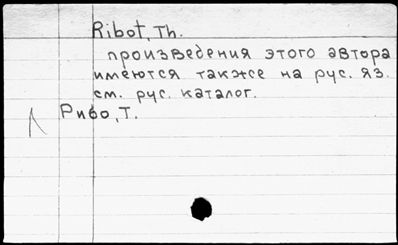 Ribot, Th.
произведения этого автора
имеются также на рус. яз.
см. рус. каталог.
Рибо, Т.